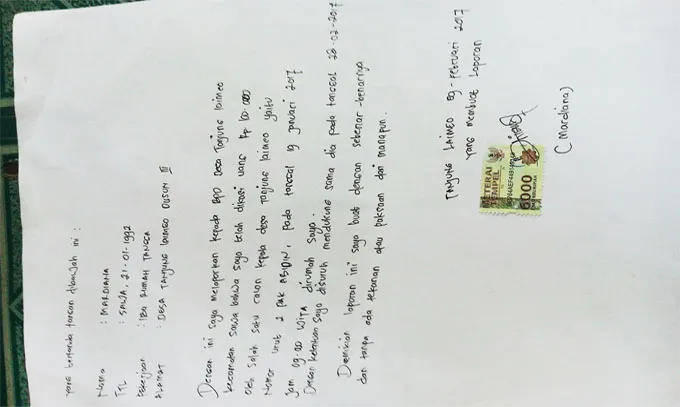 yang bertanda tangan dibawah ini :
Nama : MARDIANA
TTL : SAWA, 21-01-1992
Pekerjaan : IBU RUMAH TANGGA
ALAMAT : DESA TANJUNG LAIMEO DUSUN III
Dengan ini saya melaporkan kepada BPD Desa Tanjung laimeo
kecamatan sawa bahwa saya telah dikasi uang Rp 100.000
Oleh Salah satu calon kepala desa Tanjung laimeo yaitu
Nomor urut 2 pak ABIDIN, pada tanggal 19 januari 2017
jam 09.00 WITA dirumah saya.
Dengan ketentuan saya disuruh mendukung sama dia pada tanggal 28-02-2017
Demikian laporan ini saya buat dengan sebenar-benarnya
dan tanpa ada tekanan atau paksaan dari manapun.
TANJUNG LAIMEO 09-Februari 2017
yang membuat Laporan
METERAI
TEMPEL
6000
(Mardiana)